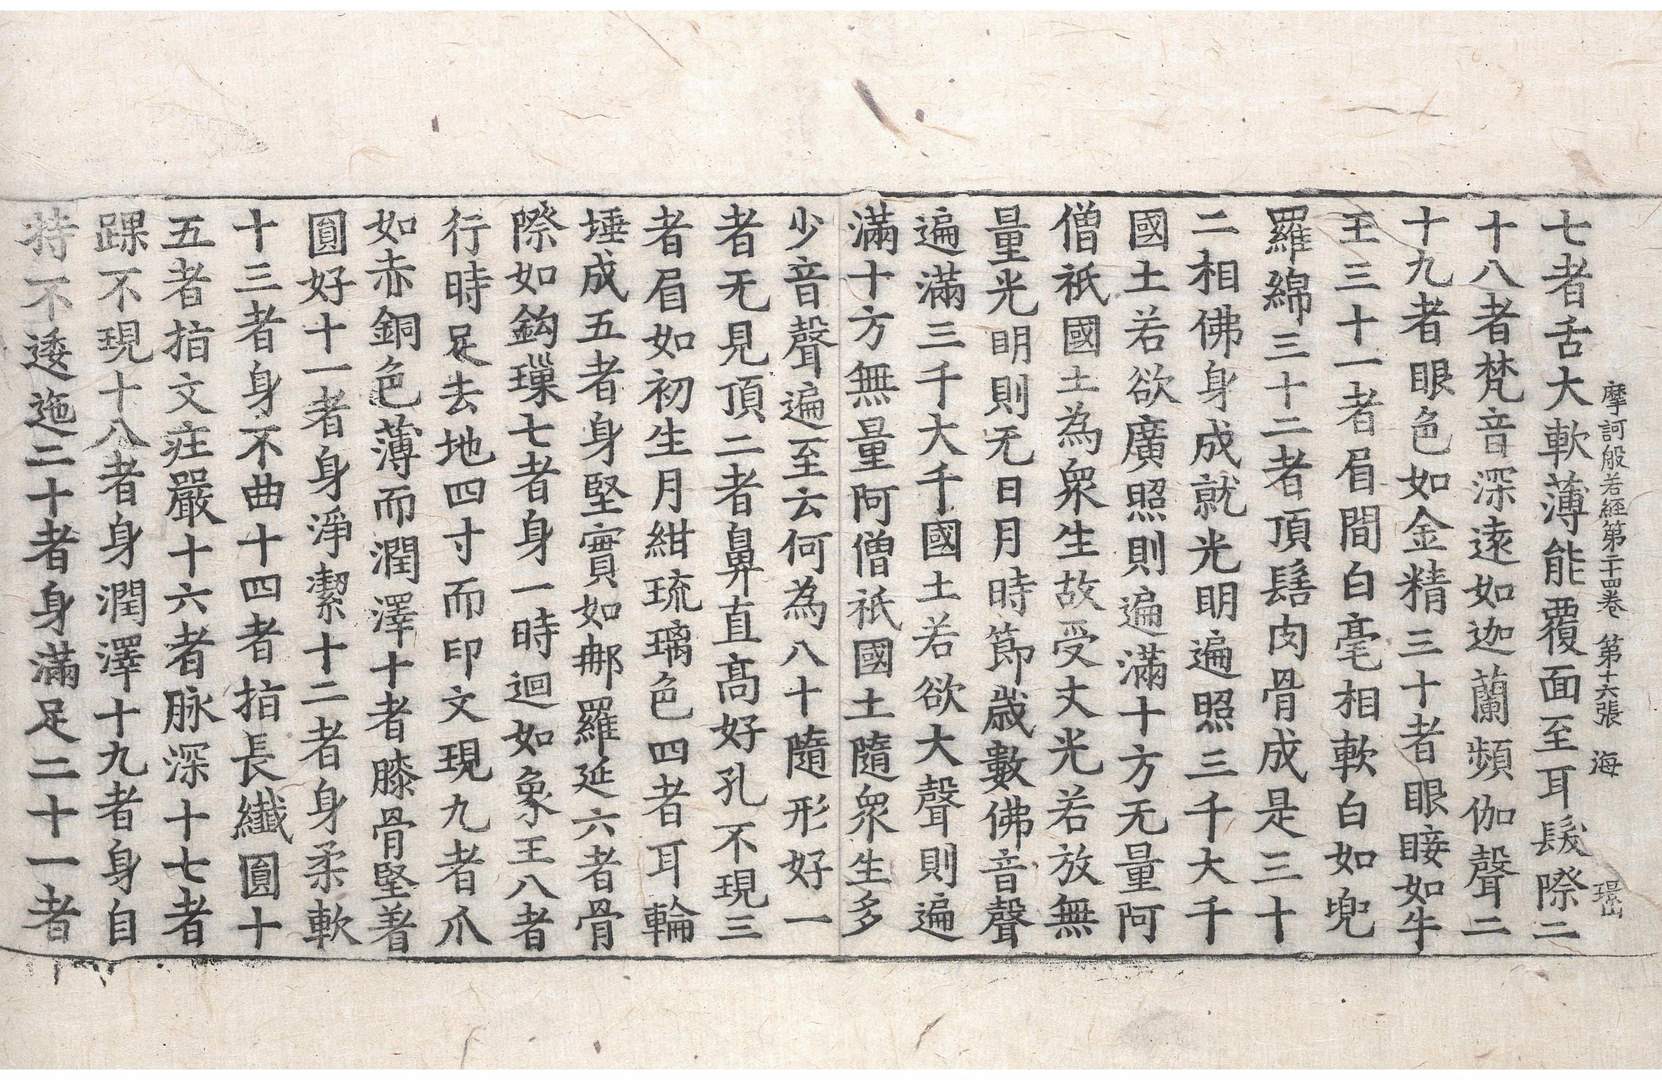 摩訶般若經第二十四卷 第十六張 海
七者舌大軟薄能覆面至耳髮際二
十八者梵音深遠如迦蘭頻伽聲二
十九者眼色如金精三十者眼睫如牛
王三十一者眉間白毫相軟白如兜
羅綿三十二者頂髻肉骨成是三十
二相佛身成就光明遍照三千大千
國土若欲廣照則遍滿十方无量阿
僧祇國土為衆生故受丈光若放無
量光明則无日月時節歲數佛音聲
遍滿三千大千國土若欲大聲則遍
滿十方無量阿僧祇國土隨衆生多
少音聲遍至云何為八十隨形好一
者无見頂二者鼻直高好孔不現三
者眉如初生月紺琉璃色四者耳輪
埵成五者身堅實如那羅延六者骨
際如鈎璅七者身一時迴如象王八者
行時足去地四寸而印文現九者爪
如赤銅色薄而潤澤十者膝骨堅著
圓好十一者身淨潔十二者身柔軟
十三者身不曲十四者指長纖圓十
五者指文莊嚴十六者脉深十七者
踝不現十八者身潤澤十九者身自
持不逶迤二十者身滿足二十一者